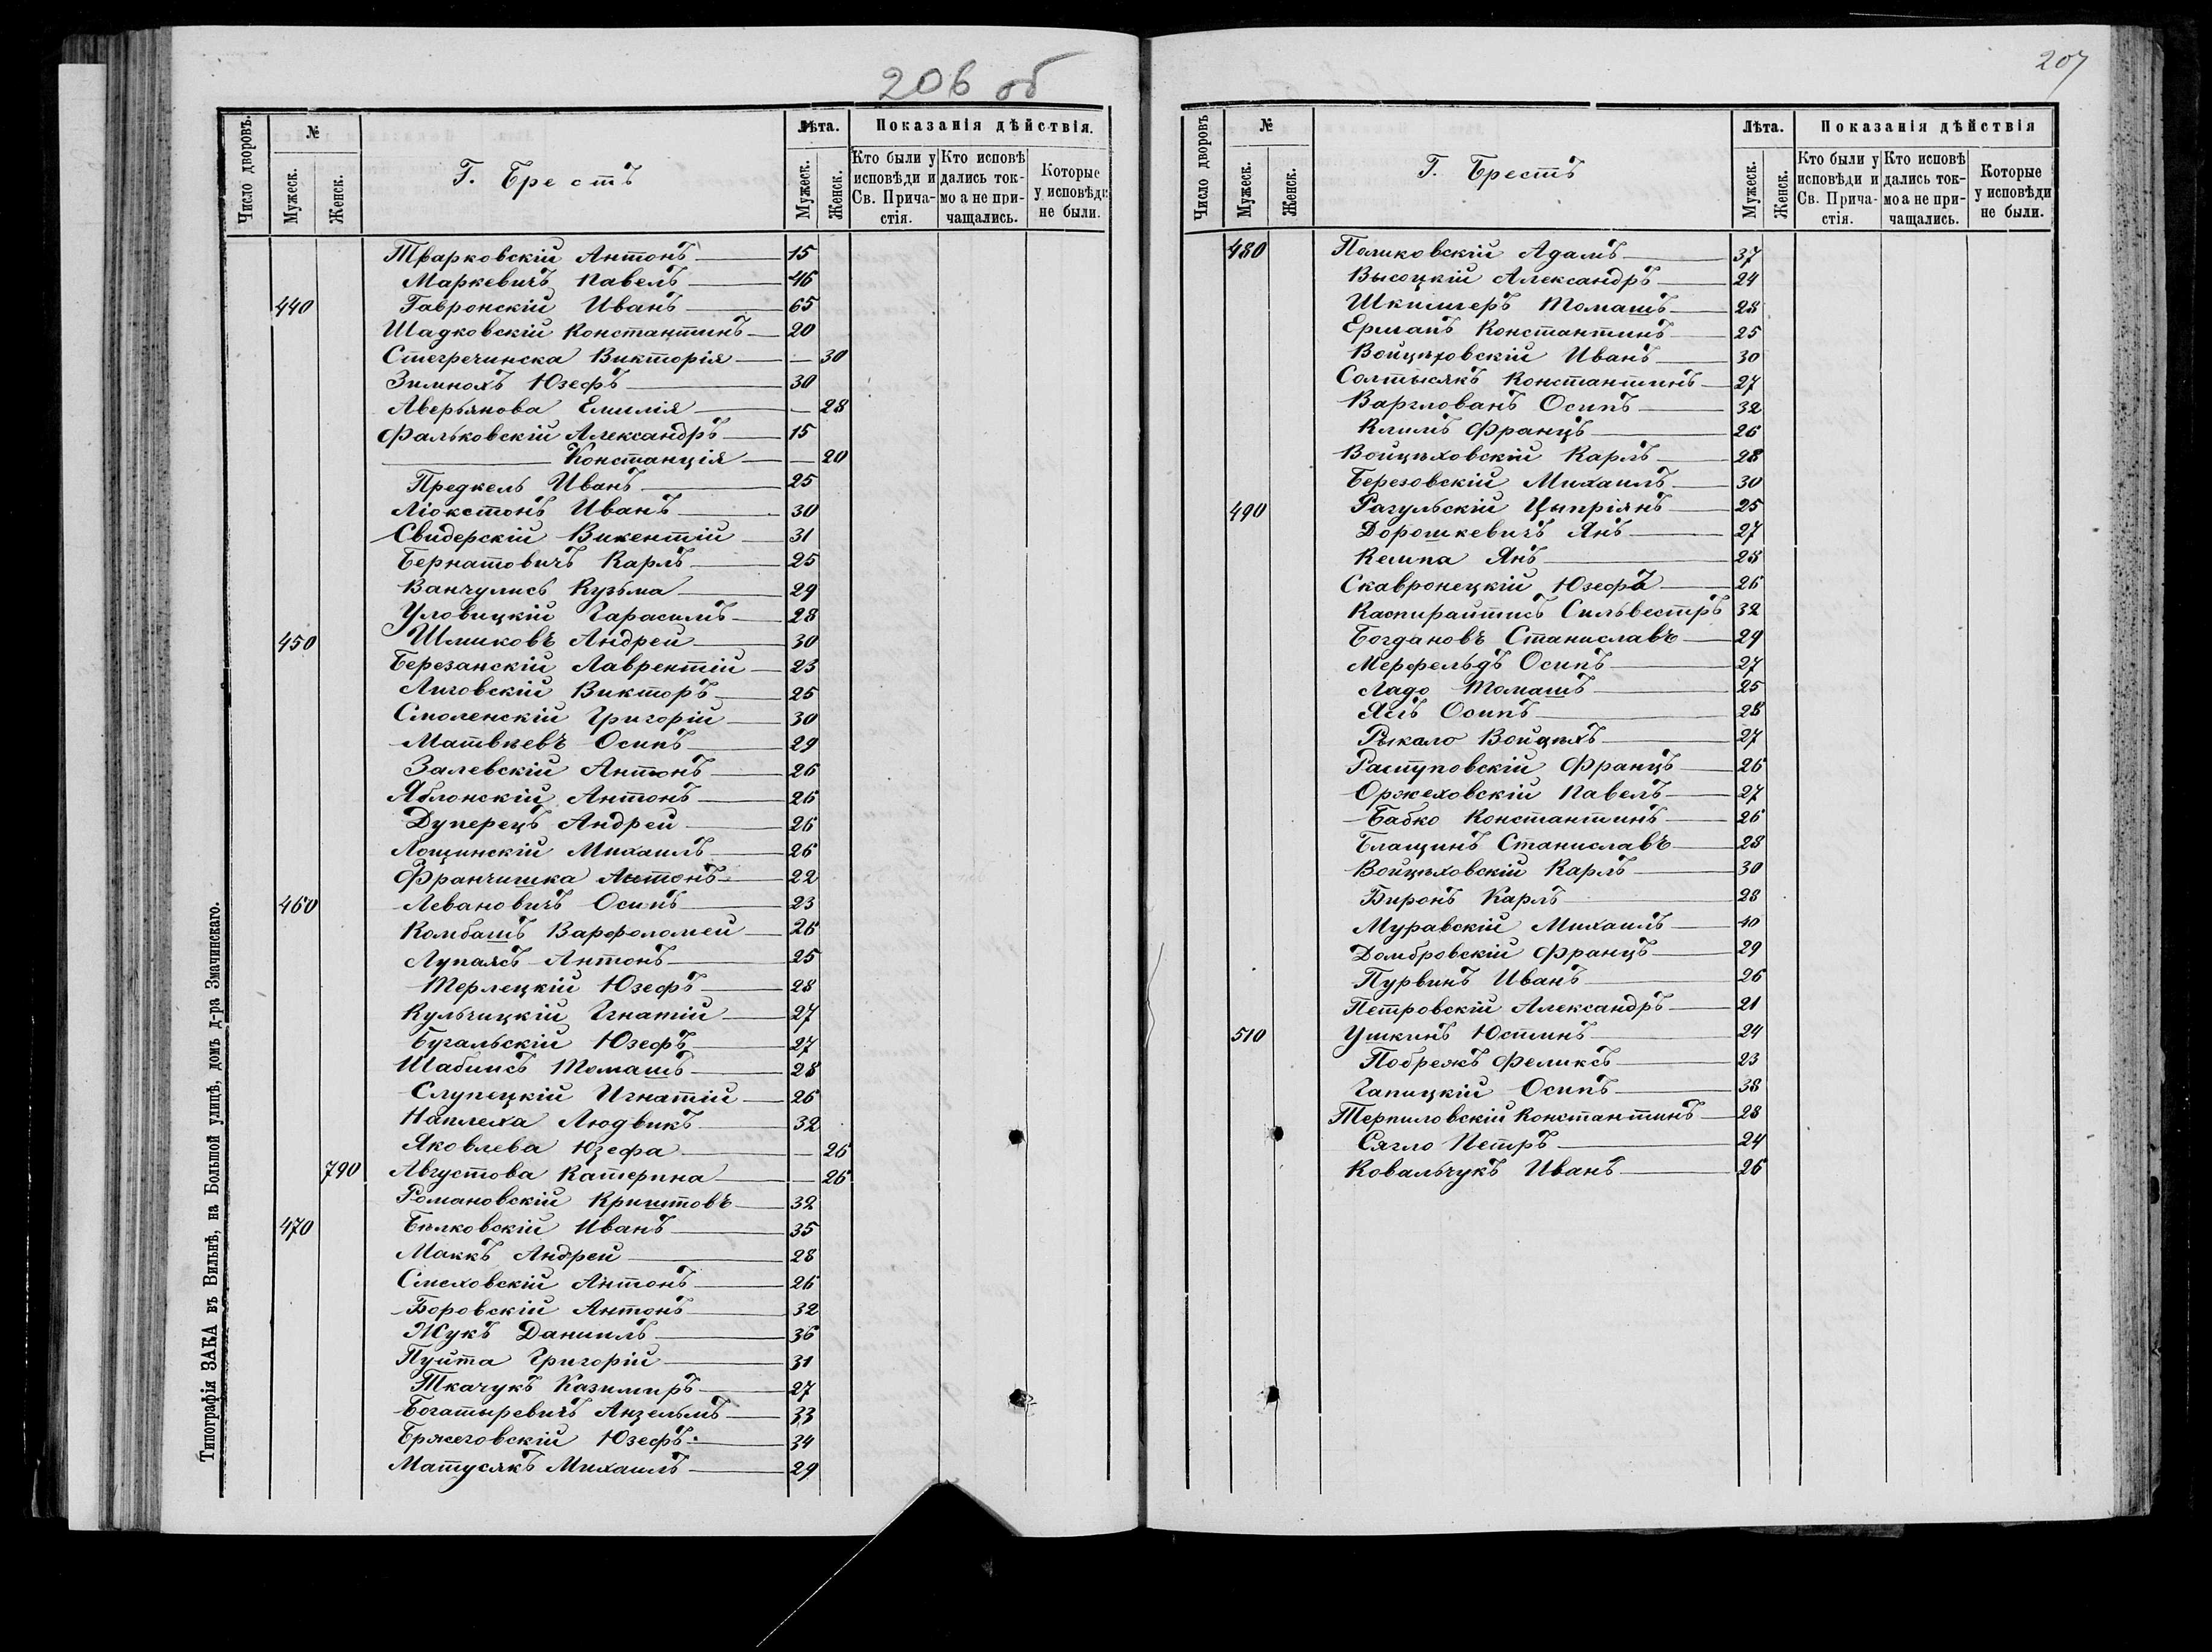 206 об
Число дворовъ. № Лѣта. Показанія дѣйствія.
Мужеск. Женск. Г. Брестъ Мужеск. Женск. Кто были у исповѣди и Св. Прича-стія. Кто исповѣ дались ток-мо а не при-чащались. Которые у исповѣди не были.
Маркевичъ Павелъ 46
440 Гавронскій Иванъ 65
Шадковскій Константинъ 20
Стегречинска Викторія — 30
Зимнохъ Юзефъ 30
Аверьянова Емилія — 28
Фальковскій Александръ 15
Констанція — 20
Предкель Иванъ 25
Ліокстонъ Иванъ 30
Свидерскій Викентій 31
Бернатовичъ Карлъ 25
Ванчулисъ Кузьма 29
Уловицкій Гарасимъ 28
450 Шмиковъ Андрей 30
Березанскій Лаврентій 23
Лиговскій Викторъ 25
Смоленскій Григорій 30
Матвѣевъ Осипъ 29
Залевскій Антонъ 26
Яблонскій Антонъ 26
Дуперецъ Андрей 26
Лощинскій Михаилъ 26
Франчишка Антонъ 22
460 Левановичъ Осипъ 23
Комбашъ Варфоломей 26
Лупаясъ Антонъ 25
Терлецкій Юзефъ 28
Кульчицкій Игнатій 27
Бугальскій Юзефъ 27
Шабинсъ Томашъ 28
Слупецкій Игнатій 26
Наплеха Людвикъ 32
Яковлева Юзефа — 26
790 Августова Катерина — 26
Романовскій Криштовъ 32
470 Бѣлковскій Иванъ 35
Маккъ Андрей 28
Смеховскій Антонъ 26
Боровскій Антонъ 32
Жукъ Даниилъ 36
Пуйта Григорій 31
Ткачукъ Казимиръ 27
Богатыревичъ Анзельмъ 33
Бржеговскій Юзефъ 34
Матусякъ Михаилъ 29
Типографія ЗАКА въ Вильнѣ, на Большой улицѣ, домъ д-ра Змачинскаго.
207
Число дворовъ № Лѣта. Показанія дѣйствія
Мужеск. Женск. Г. Брестъ Мужеск. Женск. Кто были у исповѣди и Св. Прича-стія. Кто исповѣ дались ток-мо а не при-чащались. Которые у исповѣди не были.
480 Поликовскій Адамъ 37
Высоцкій Александръ 24
Шкпилеръ Томашъ 28
Ермапъ Константинъ 25
Войцѣховскій Иванъ 30
Солтысякъ Константинъ 27
Варглованъ Осипъ 32
Климъ Францъ 26
Войцѣховскій Карлъ 28
Березовскій Михаилъ 30
490 Рагульскій Цыпріянъ 25
Дорошкевичъ Янъ 27
Кемпа Янъ 28
Скавронецкій Юзефъ 26
Каспирайтисъ Сильвестръ 32
Богдановъ Станиславъ 29
Мерфельдъ Осипъ 27
Ладо Томашъ 25
Осипъ 28
Рыкало Войцѣхъ 27
Раступовскій Францъ 26
Оржеховскій Павелъ 27
Бабко Константинъ 26
Блащинъ Станиславъ 28
Войцѣховскій Карлъ 30
Биронъ Карлъ 28
Муравскій Михаилъ 40
Домбровскій Францъ 29
Пурвинъ Иванъ 26
Петровскій Александръ 21
510 Ушкинъ Юстинъ 24
Побрежъ Феликсъ 23
Гапицкій Осипъ 38
Терпиловскій Константинъ 28
Сягло Петръ 24
Ковальчукъ Иванъ 26